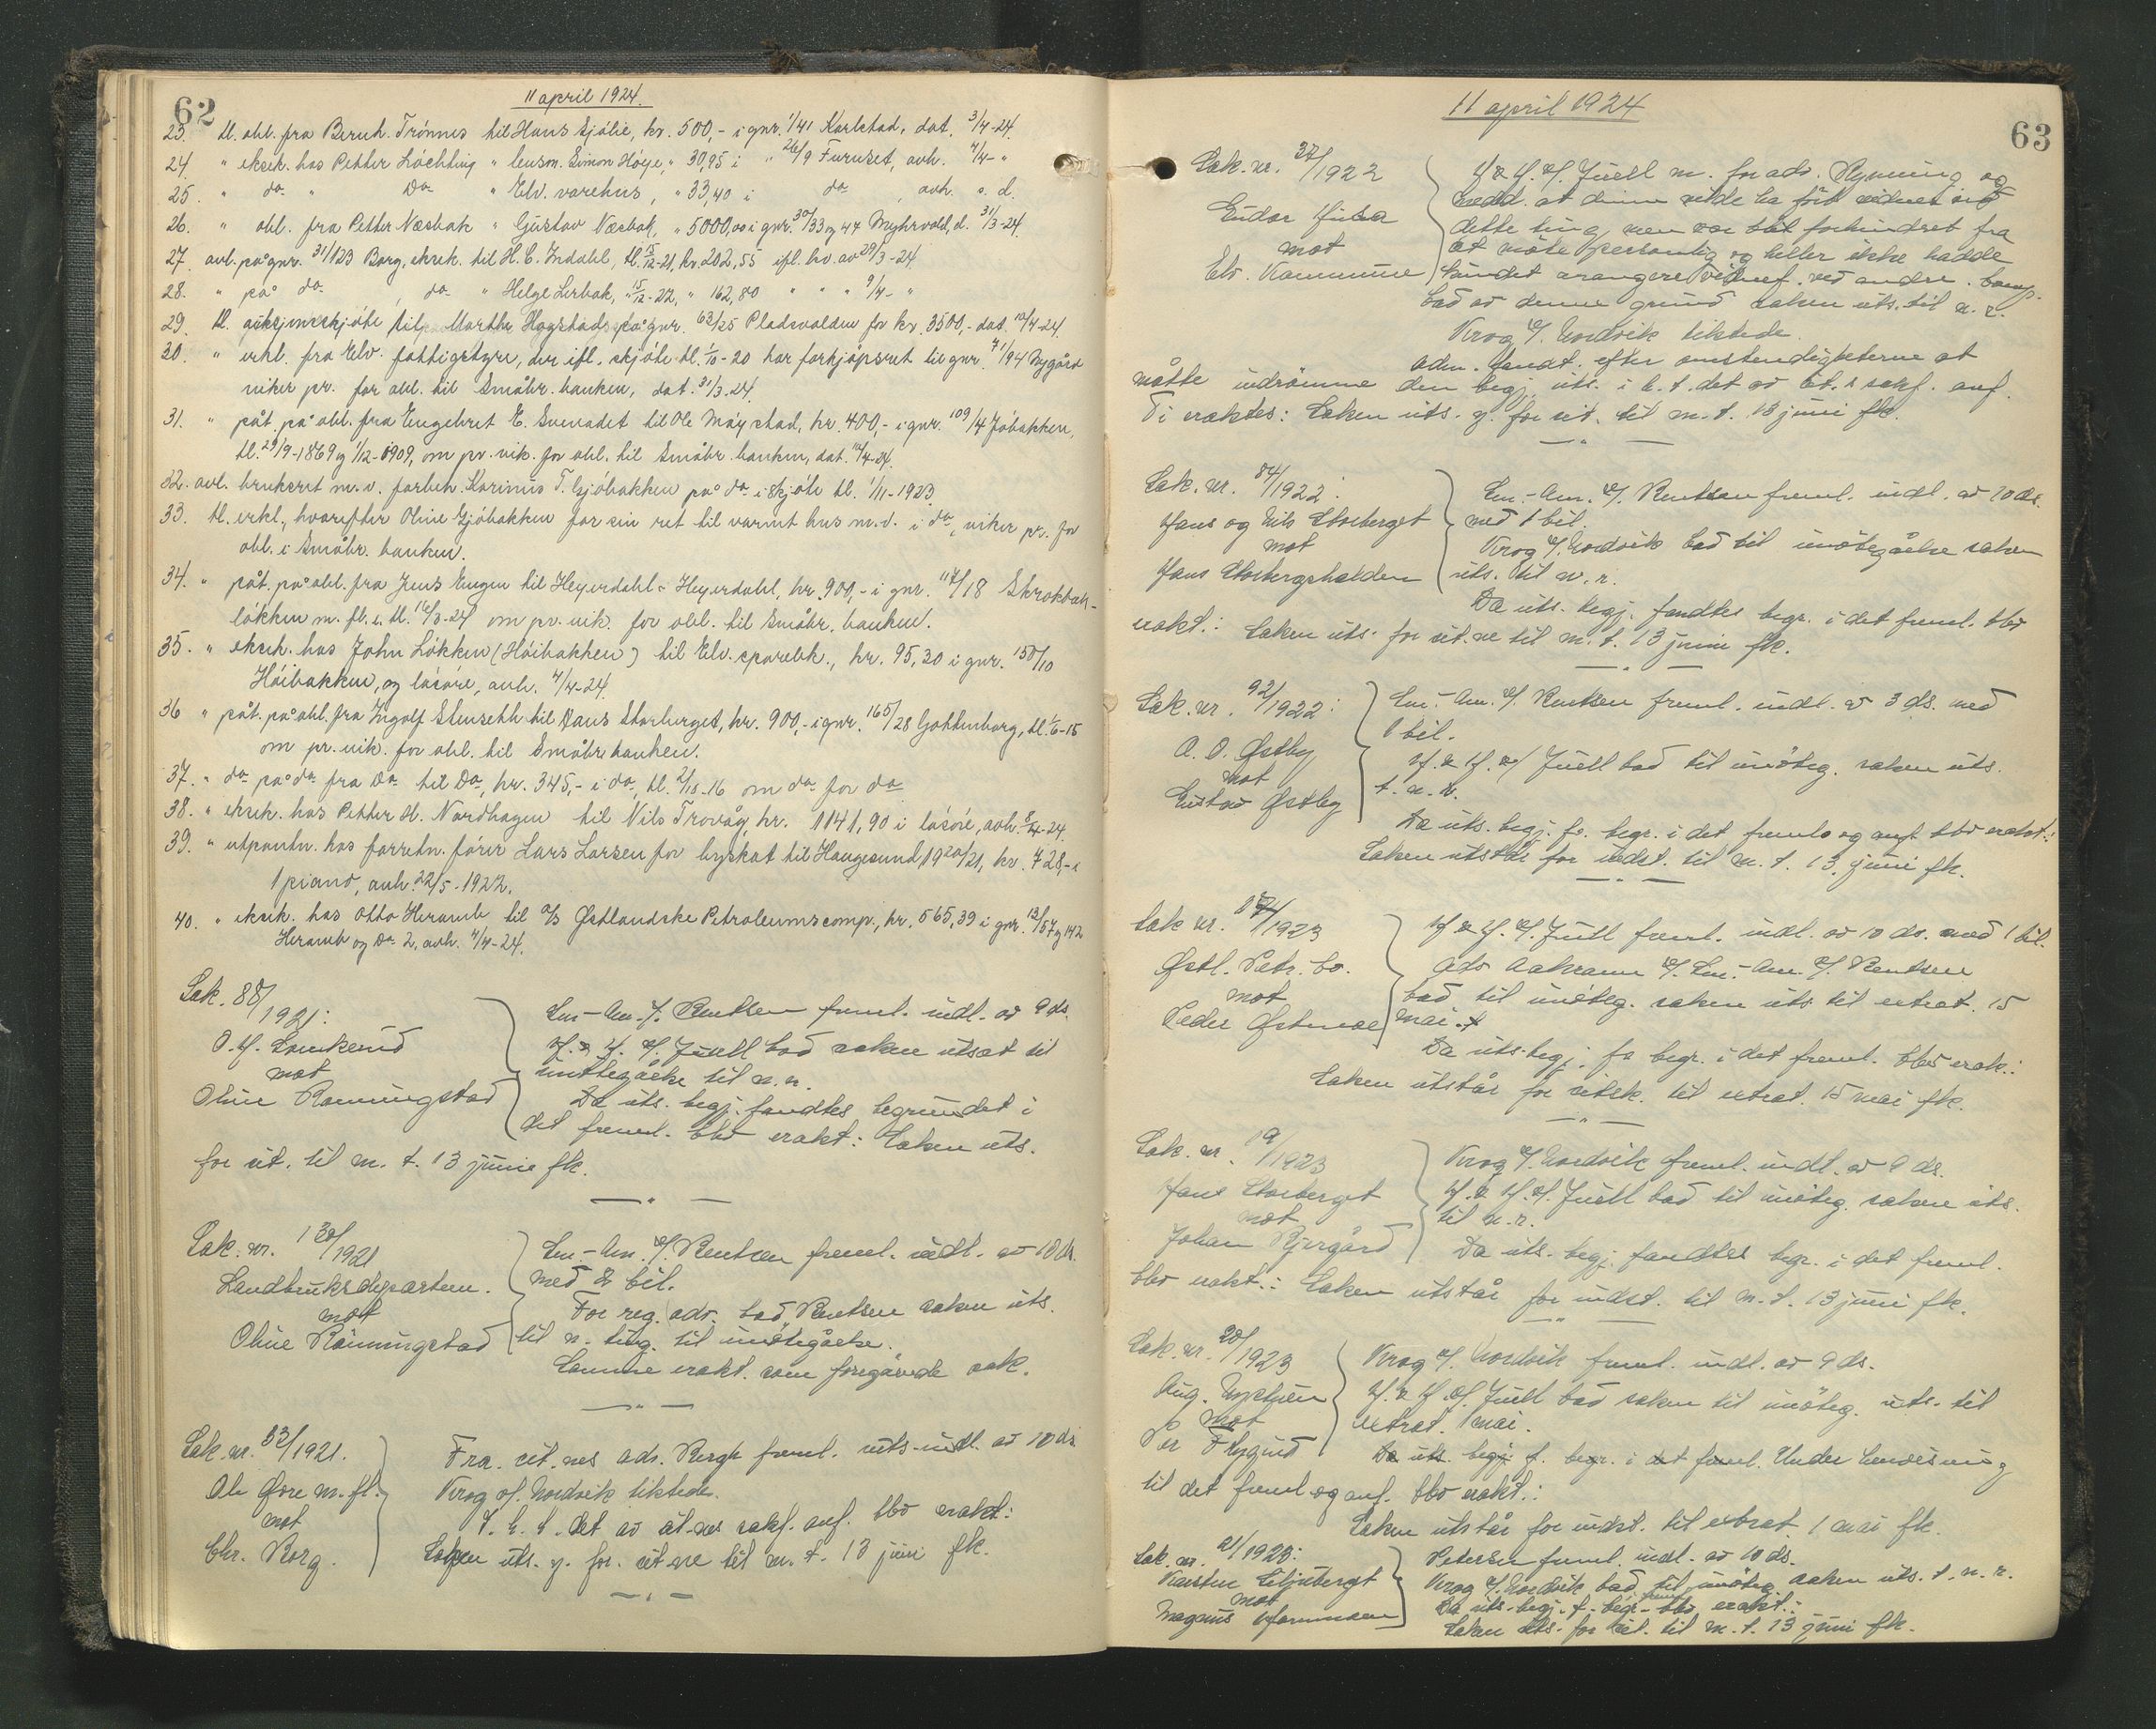 62
11 april 1924.
23. tl. obl. fra Bernh. Trønnes til Hans Sjølie, kr. 500,- i gnr. 1/41 Karlstad, dat. 3/4-24.
24. " eksek. hos Petter Løchting " lensm. Simon Høye, " 30,95 i " 26/9 Furuset, avh. 4/4- "
25. " do " Do " Elv. varehus, " 33,40 i do, avh. s. d.
26. " obl. fra Petter Næsbak " Gustav Næsbak, " 5000,00 i gnr. 30/33 og 44 Myhrvold, d. 31/3-24.
27. avl. på gnr. 31/123 Borg, eksek. til H. C. Indahl, tl. 15/12-21, kr. 202,55 ifl. kv. av 29/3-24.
28. " på do, do " Helge Lerbak, " 15/12-22, " 162,80 " " " 9/4- "
29. tl. auksjonsskjøte til Marthe Hagstad på gnr. 63/25 Pladsvolden for kr. 3500,- dat. 10/4-24.
30. " erkl. fra Elv. fattigstyre, der ifl. skjøte tl. 1/10-20 har forkjøpsret til gnr. 71/94 Nygård
viker pr. for obl. til Småbr. banken, dat. 31/3-24.
31. " påt. på obl. fra Engebret E. Svenadet til Ole Møystad, kr. 400,- i gnr. 109/4 Jøbakken,
tl. 29/9-1869 og 1/12-1909, om pr. vik. for obl. til Småbr. banken, dat. 10/4-24.
32. avl. bruksret m. v. forbeh. Karinus T. Gjøbakken på do i skjøte tl. 1/11-1923
33. tl. erkl., hvorefter Oline Gjøbakken for sin ret til varmt hus m. v. i do, viker pr. for
obl. i Småbr. banken.
34. " påt. på obl. fra Jens Engen til Heyerdahl & Heyerdahl, kr. 900,- i gnr. 117/18 Skrokbæk-
løkken m. fl. e. tl. 16/3-24 om pr. vik. for obl. til Småbr. banken.
35. " eksek. hos John Løkken (Høibakken) til Elv. sparebk., kr. 95,30 i gnr. 150/10
Høibakken, og løsøre, avh. 4/4-24.
36 " påt. på obl. fra Ingolf Stenseth til Hans Storberget, kr. 900,- i gnr. 165/28 Gottenborg, tl. 1/6-15
om pr. vik. for obl. til Småbr. banken.
37. " do på do fra Do til Do, kr. 345,- i do, tl. 2/10-16 om do for do
38. " eksek. hos Petter H. Nordhagen til Nils Trovåg, kr. 1141,90 i løsøre, avh. 8/4-24.
39. " utpantn. hos forretn. fører Lars Larsen for byskat til Haugesund 1920/21, kr. 728,- i
1 piano, avh. 22/5-1922.
40. " eksek. hos Otto Heramb til A/S Østlandske Petroleumscomp., kr. 565,39 i gnr. 13/57 og 142
Heramb og Do 2, avh. 4/4-24.
Sak. 88/1921:
O. H.
mot
Oline Rønningstad
Lm-Am. f. Bentsen freml. indl. av 9 ds.
H. & H. v/ Juell bad saken utsat til
imøtegåelse til n. r.
Da uts. begj. fandtes begrundet i
det freml. blev erakt: Saken uts.
for vit. til m. t. 13 junie fk.
Sak. nr. 130/1921
Landbruksdepartem.
mot
Oline Rønningstad
Lm-Am. v/ Bentsen freml. indl. av 10 ds.
med 2 bil.
For reg. adv. bad Bentsen saken uts.
til n. ting. til imøtegåelse.
Samme erakt. som foregående sak.
Sak. nr. 53/1921.
Ole Øvre m. fl.
mot
Chr. Borg.
Fra. cit. nes adv. Bergh freml. uts-indl. av 10 ds
Krog v/ Nordvik tiltsted.
I. h. t. det av cit. nes sakf. anf. blev erakt:
Saken uts. y. for. cit ne til m. t. 13 juni fk.
11 april 1924
63
Sak. nr. 37/1922
mot
Elv. Kommune
H & H. v/ Juell m. for adv. Rynning og
medd. at denne vilde ha ført vidner
dette ting, men var blit forhindret fra
at møte personlig og heller ikke hadde
kundet arangere ved andre.
bad av denne grund saken uts. til n. r.
Krog v/ Nordvik tilstede.
Adm. fandt efter omstendigheterne at
måtte indrømme den begj. uts. i h. t. det av cit. s sakf. anf.
Ti eraktes: Saken uts. y. for vit. til m. t. 13 juni fk.
Sak. nr. 84/1922:
Hans og Nils Storberget
mot
Hans Storbergshalden
Lm.-Am. v/ Bentsen freml. indl. av 10 ds.
med 1 bil.
Krog v/ Nordvik bad til imøtegåelse saken
uts. til n. r.
Da uts. begj. fandtes begr. i det freml. blev
erakt.: Saken uts. for cit. ne til m. t. 13 juni fk.
Sak. nr. 92/1922:
A. O. Østby
mot
Gustav Østby
Lm.-Am. v/ Bentsen freml. indl. av 3 ds. med
1 bil.
H. & H. v/ Juell bad til imøteg. saken uts.
t. n. r.
Da uts. begj. fa. begr. i det freml. og anf. blev erakt.:
Saken utstår for indst. til m. t. 13. juni fk.
Sak nr. /1923
Østl. Petr. Co.
mot
Peder Østmoe
H & H. v/ Juell freml. indl. av 10 ds. med 1 bil.
Adv Aakrann v/ Lm.-Am. v/ Bentsen
bad til imøteg. saken uts. til extrat. 15
mai.
Da uts. begj. fa begr. i det freml. blev erak.:
Saken utstår for vitsk. til extrat. 15 mai fk.
Sak. nr. 19/1923
Hans Storberget
mot
Johan Bjergård
Krog v/ Nordvik freml. indl. av 9 ds.
H. & H. v/ Juell bad til imøteg. saken uts.
til n. r.
Da uts. begj. fandtes begr. i det freml.
blev erakt.: Saken utstår for indst. til m. t. 13 juni fk.
Sak. nr. 20/1923
Aug. Nystuen
mot
Per Flygind
Krog v/ Nordvik freml. indl. av 9 ds.
H. & H. v/ Juell bad saken til imøteg. uts. til
extrat. 1 mai.
Da uts. begj. f. begr. i det freml. Under henvisning
til det freml og anf. blev erakt.:
Saken utstår for indst. til extrat. 1 mai fk.
Sak. nr. 21/1923:
Karsten Liljeberget
mot
Magnus
Petersen freml. indl. av 10 ds.
Krog v/ Nordvik bad til imøteg. saken uts. t. n. r.
Da uts. begj. f. begr. freml. blev erakt.:
Saken uts. for cit. til m. t. 13 juni fk.